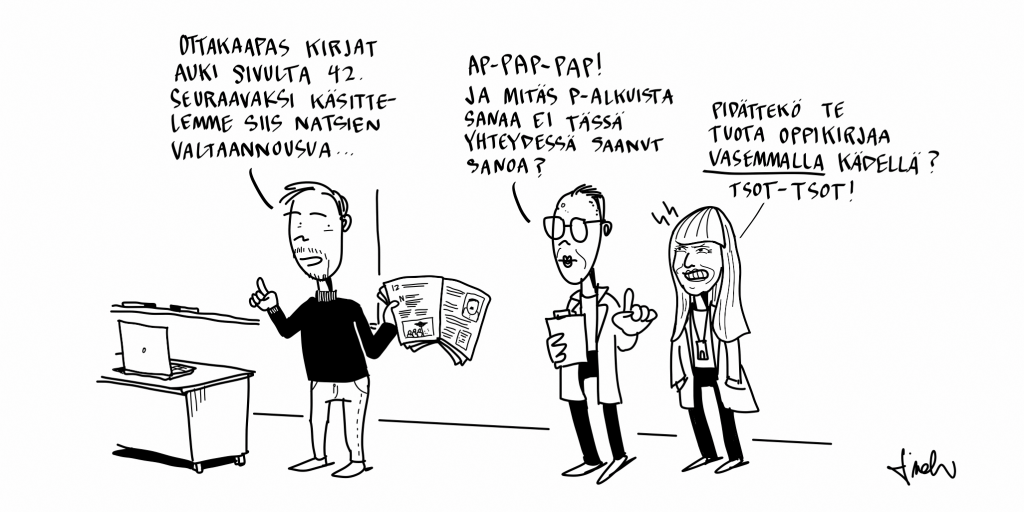 OTTAKAAPAS KIRJAT
AUKI SIVULTA 42.
SEURAAVAKSI KÄSITTE-
LEMME SIIS NATSIEN
VALTAANNOUSUA...
AP-PAP-PAP!
JA MITÄS P-ALKUISTA
SANAA EI TÄSSÄ
YHTEYDESSÄ SAANUT
SANOA?
PIDÄTTEKÖ TE
TUOTA OPPIKIRJAA
VASEMMALLA KÄDELLÄ?
TSOT-TSOT!
12
N